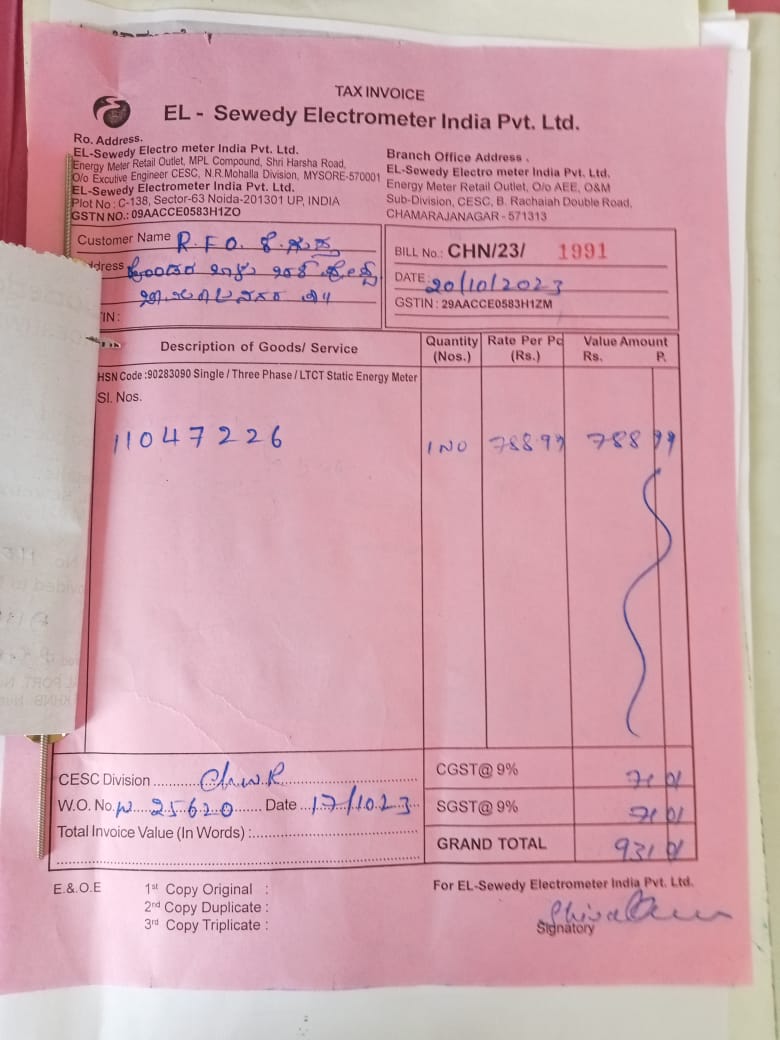 TAX INVOICE
EL - Sewedy Electrometer India Pvt. Ltd.
Ro. Address.
EL-Sewedy Electro meter India Pvt. Ltd.
Energy Meter Retail Outlet, MPL Compound, Shri Harsha Road,
O/o Excutive Engineer CESC, N.R.Mohalla Division, MYSORE-570001
EL-Sewedy Electrometer India Pvt. Ltd.
Plot No : C-138, Sector-63 Noida-201301 UP, INDIA
GSTN NO.: 09AACCE0583H1ZO
Branch Office Address .
EL-Sewedy Electro meter India Pvt. Ltd.
Energy Meter Retail Outlet, O/o AEE, O&M
Sub-Division, CESC, B. Rachaiah Double Road,
CHAMARAJANAGAR - 571313
Customer Name R.F.O.
dress
IN :
BILL No.: CHN/23/ 1991
DATE : 20/10/2023
GSTIN : 29AACCE0583H1ZM
Description of Goods/ Service Quantity (Nos.) Rate Per Pc (Rs.) Value Amount Rs. P.
HSN Code :90283090 Single / Three Phase / LTCT Static Energy Meter
Sl. Nos.
11047226 1 NO 788 99 788 99
CESC Division
W.O. No. 25620 Date 17/10.23
Total Invoice Value (In Words) :
CGST@ 9% 71 01
SGST@ 9% 71 01
GRAND TOTAL 931 01
E.&.O.E 1st Copy Original :
2nd Copy Duplicate :
3rd Copy Triplicate :
For EL-Sewedy Electrometer India Pvt. Ltd.
Signatory